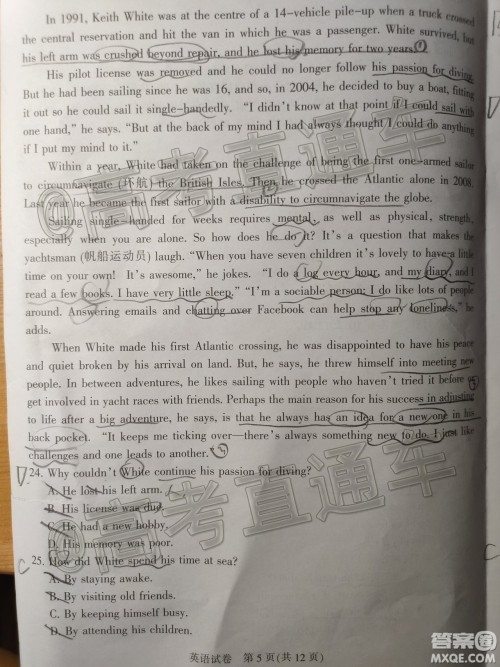 In 1991, Keith White was at the centre of a 14-vehicle pile-up when a truck crossed
the central reservation and hit the van in which he was a passenger. White survived, but
his left arm was crushed beyond repair, and he lost his memory for two years.
His pilot license was removed and he could no longer follow his passion for diving.
But he had been sailing since he was 16, and so, in 2004, he decided to buy a boat, fitting
it out so he could sail it single-handedly. "I didn't know at that point if I could sail with
one hand," he says. "But at the back of my mind I had always thought I could do anything
if I put my mind to it."
Within a year, White had taken on the challenge of being the first one-armed sailor
to circumnavigate (环航) the British Isles. Then he crossed the Atlantic alone in 2008.
Last year he became the first sailor with a disability to circumnavigate the globe.
Sailing single-handed for weeks requires mental, as well as physical, strength,
especially when you are alone. So how does he do it? It's a question that makes the
yachtsman (帆船运动员) laugh. "When you have seven children it's lovely to have a little
time on your own! It's awesome," he jokes. "I do a log every hour, and my diary, and I
read a few books. I have very little sleep." "I'm a sociable person; I do like lots of people
around. Answering emails and chatting over Facebook can help stop any loneliness," he
adds.
When White made his first Atlantic crossing, he was disappointed to have his peace
and quiet broken by his arrival on land. But, he says, he threw himself into meeting new
people. In between adventures, he likes sailing with people who haven't tried it before to
get involved in yacht races with friends. Perhaps the main reason for his success in adjusting
to life after a big adventure, he says, is that he always has an idea for a new one in his
back pocket. "It keeps me ticking over—there's always something new to do. I just like
challenges and one leads to another."
24. Why couldn't White continue his passion for diving?
A. He lost his left arm.
B. His license was due.
C. He had a new hobby.
D. His memory was poor.
25. How did White spend his time at sea?
A. By staying awake.
B. By visiting old friends.
C. By keeping himself busy.
D. By attending his children.
英语试卷 第5页(共12页)
@高考直通车
@高考直通车
答案圈
MXQE.COM